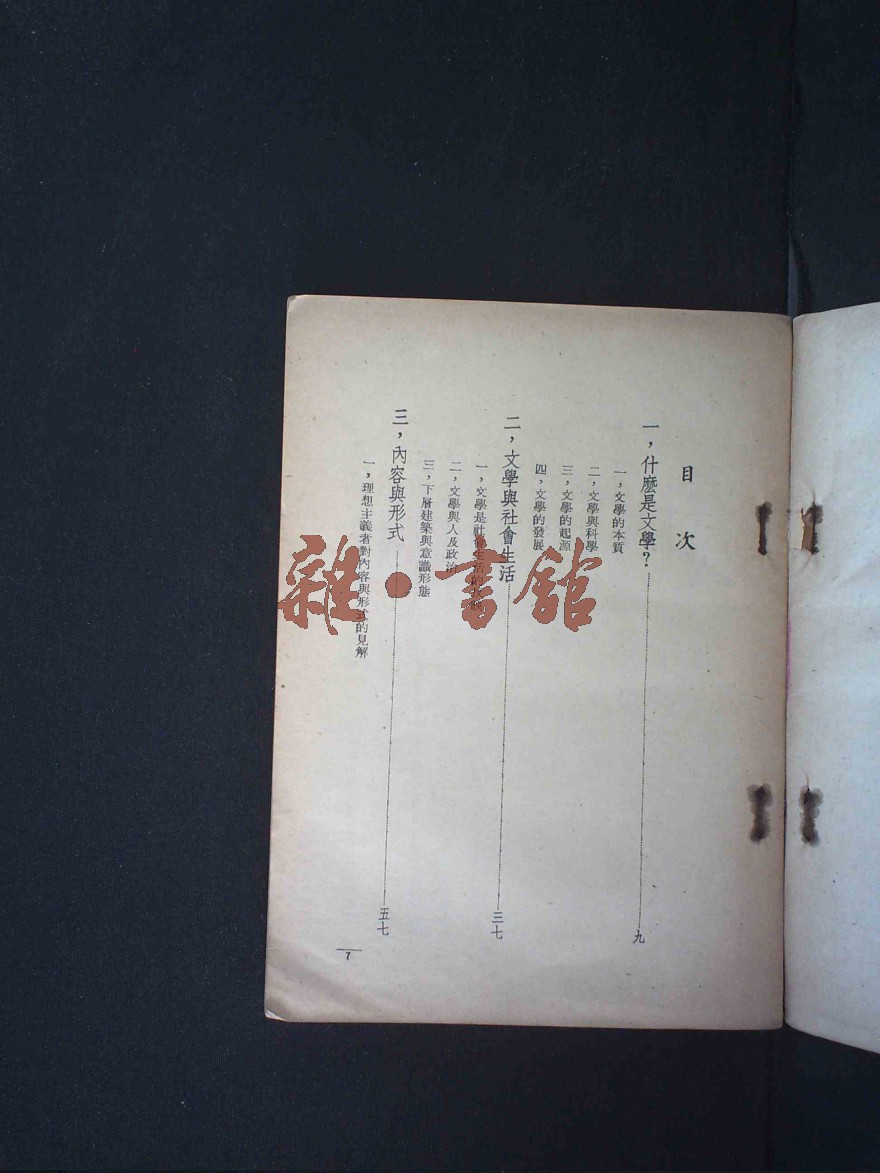 目次
一，什麼是文學？九
一，文學的本質
二，文學與科學
三，文學的起源
四，文學的發展
二，文學與社會生活三七
一，文學是社會生活的
二，文學與人及政治
三，下層建築與意識形態
三，內容與形式五七
一，理想主義者對內容與形式的見解
7
雜·書館